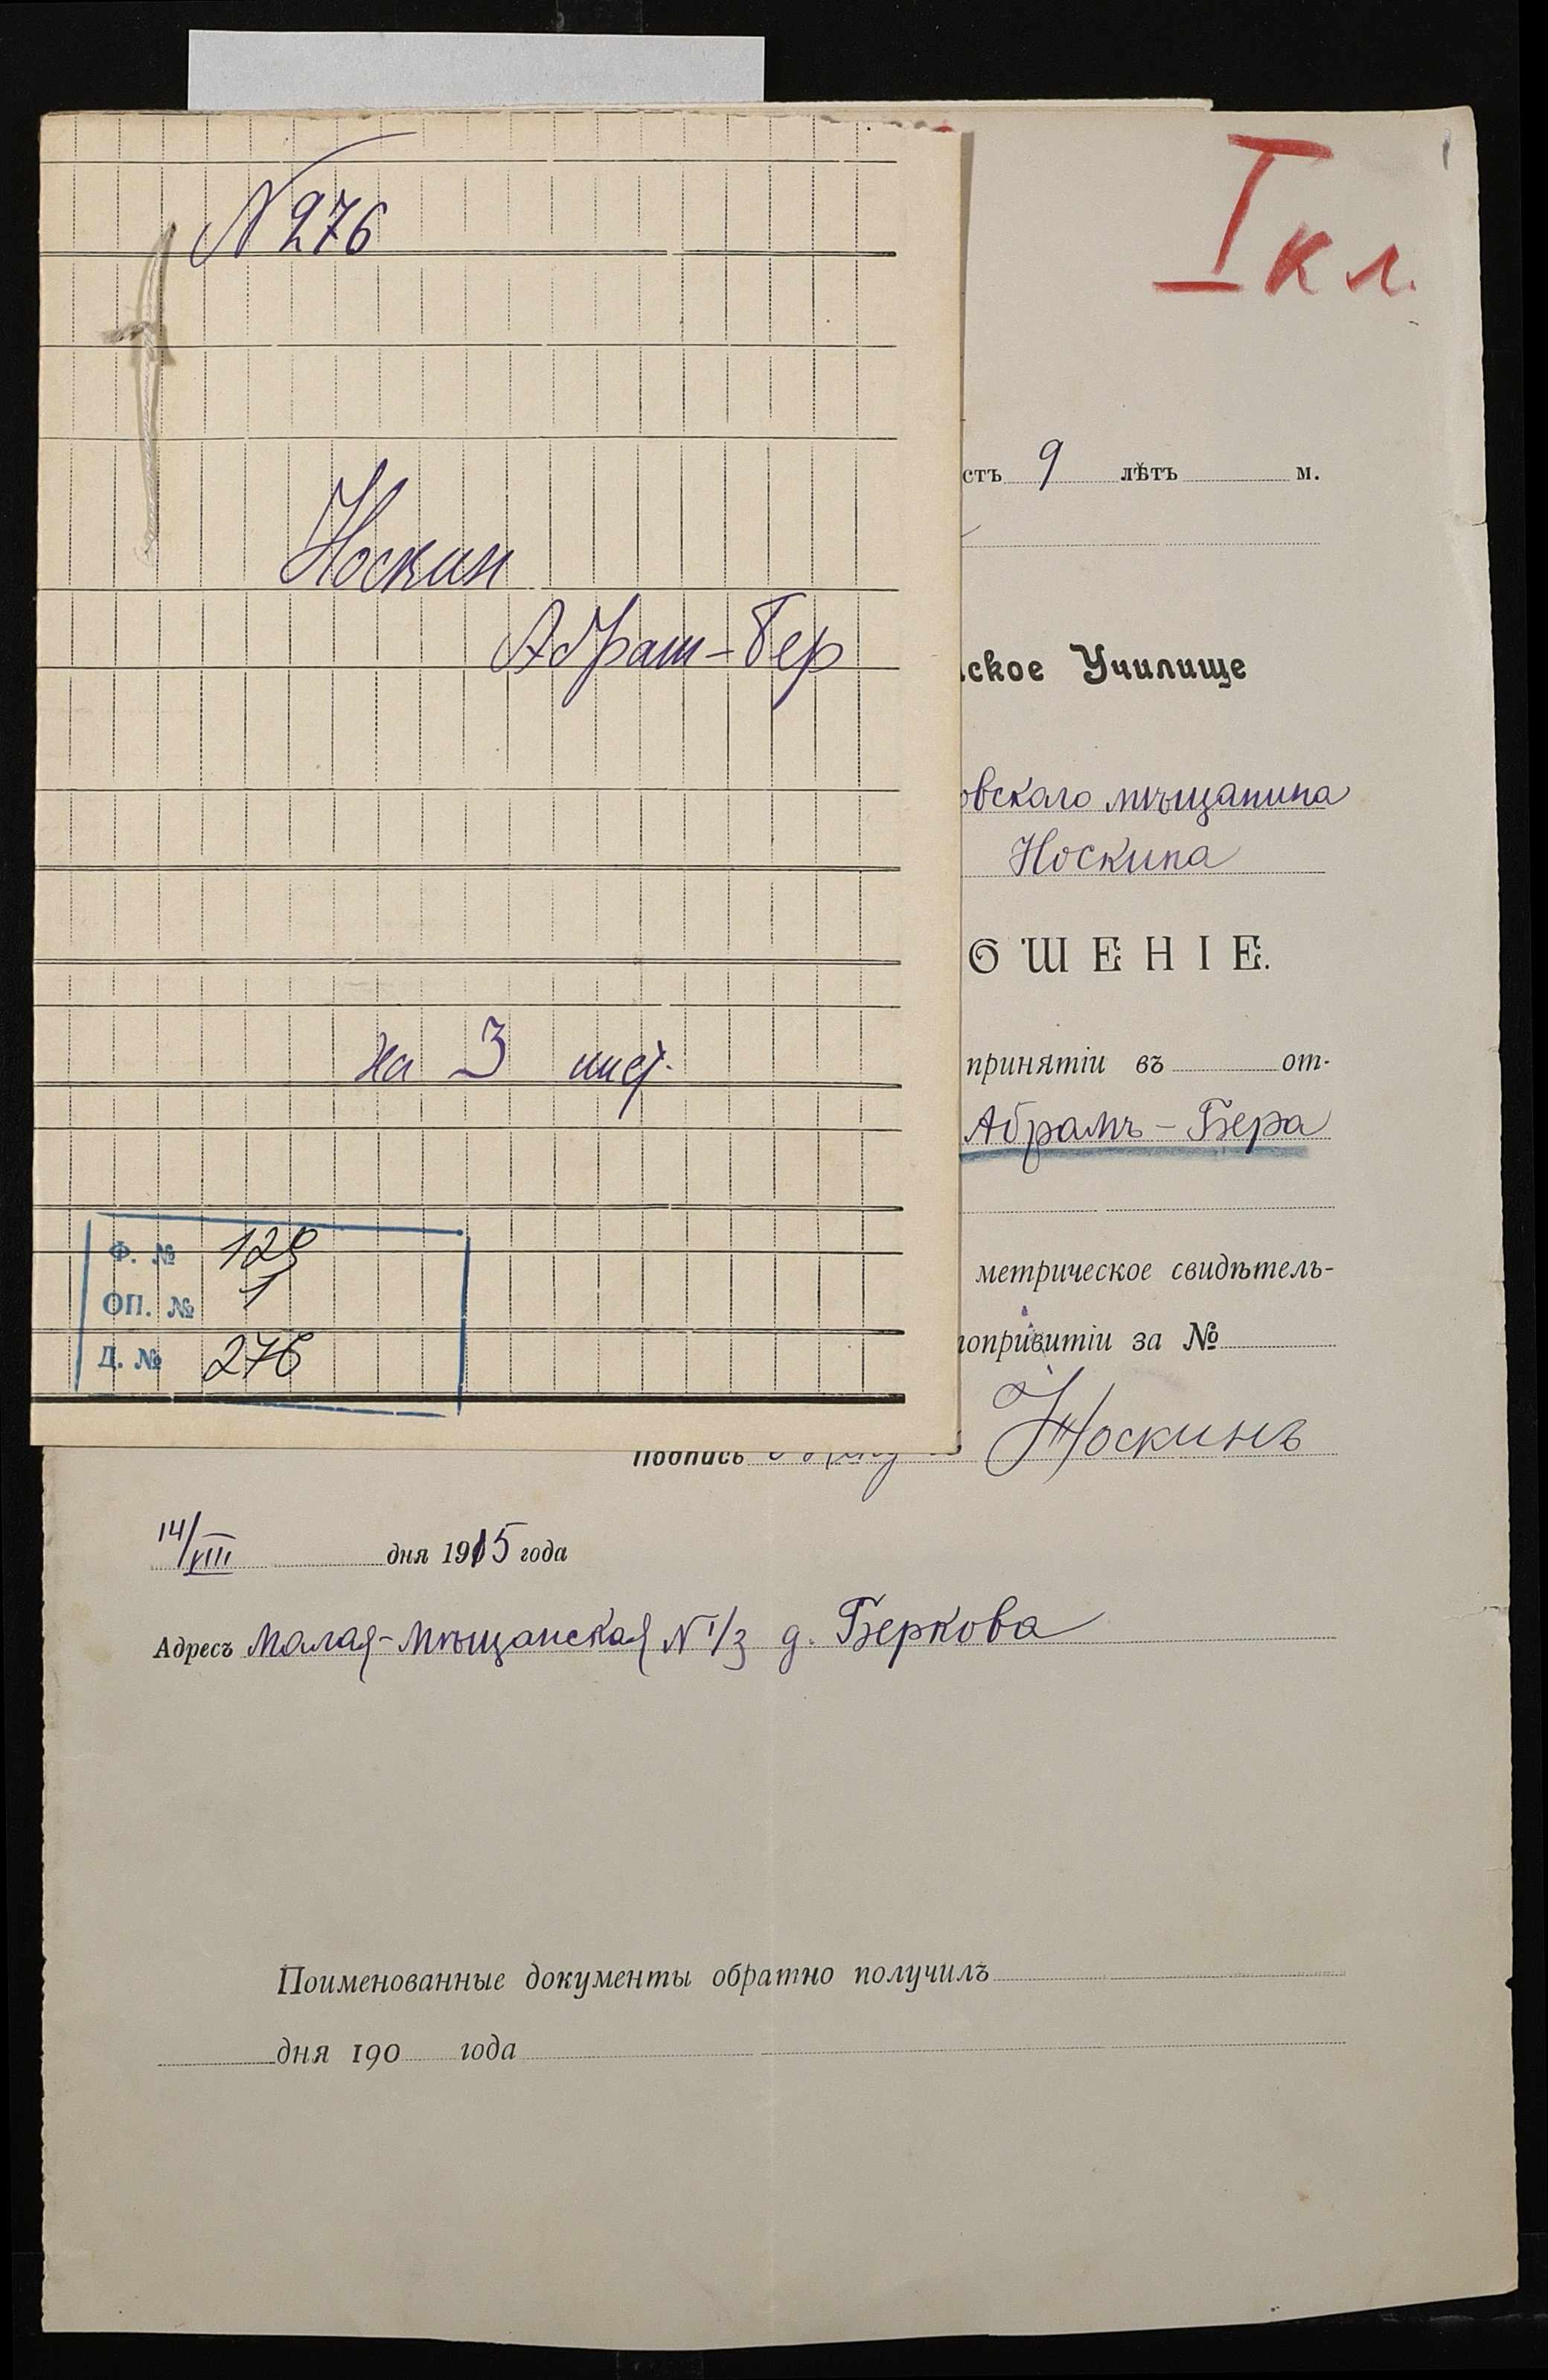 N 276
Носкин
Абрам-Бер
на 3 лист.
Ф. № 129
ОП. № 1
Д. № 276
I кл.
1
сть 9 лѣтъ м.
ское Училище
овскаго мѣщанина
Носкина
ОШЕНІЕ.
принятіи въ от-
Абрамъ-Бера
метрическое свидѣтель-
попривитіи за №
Подпись Носкинъ
14/VIII дня 1915 года
Адресъ Малая-Мѣщанская N 1/3 д. Беркова
Поименованные документы обратно получилъ
дня 190 года